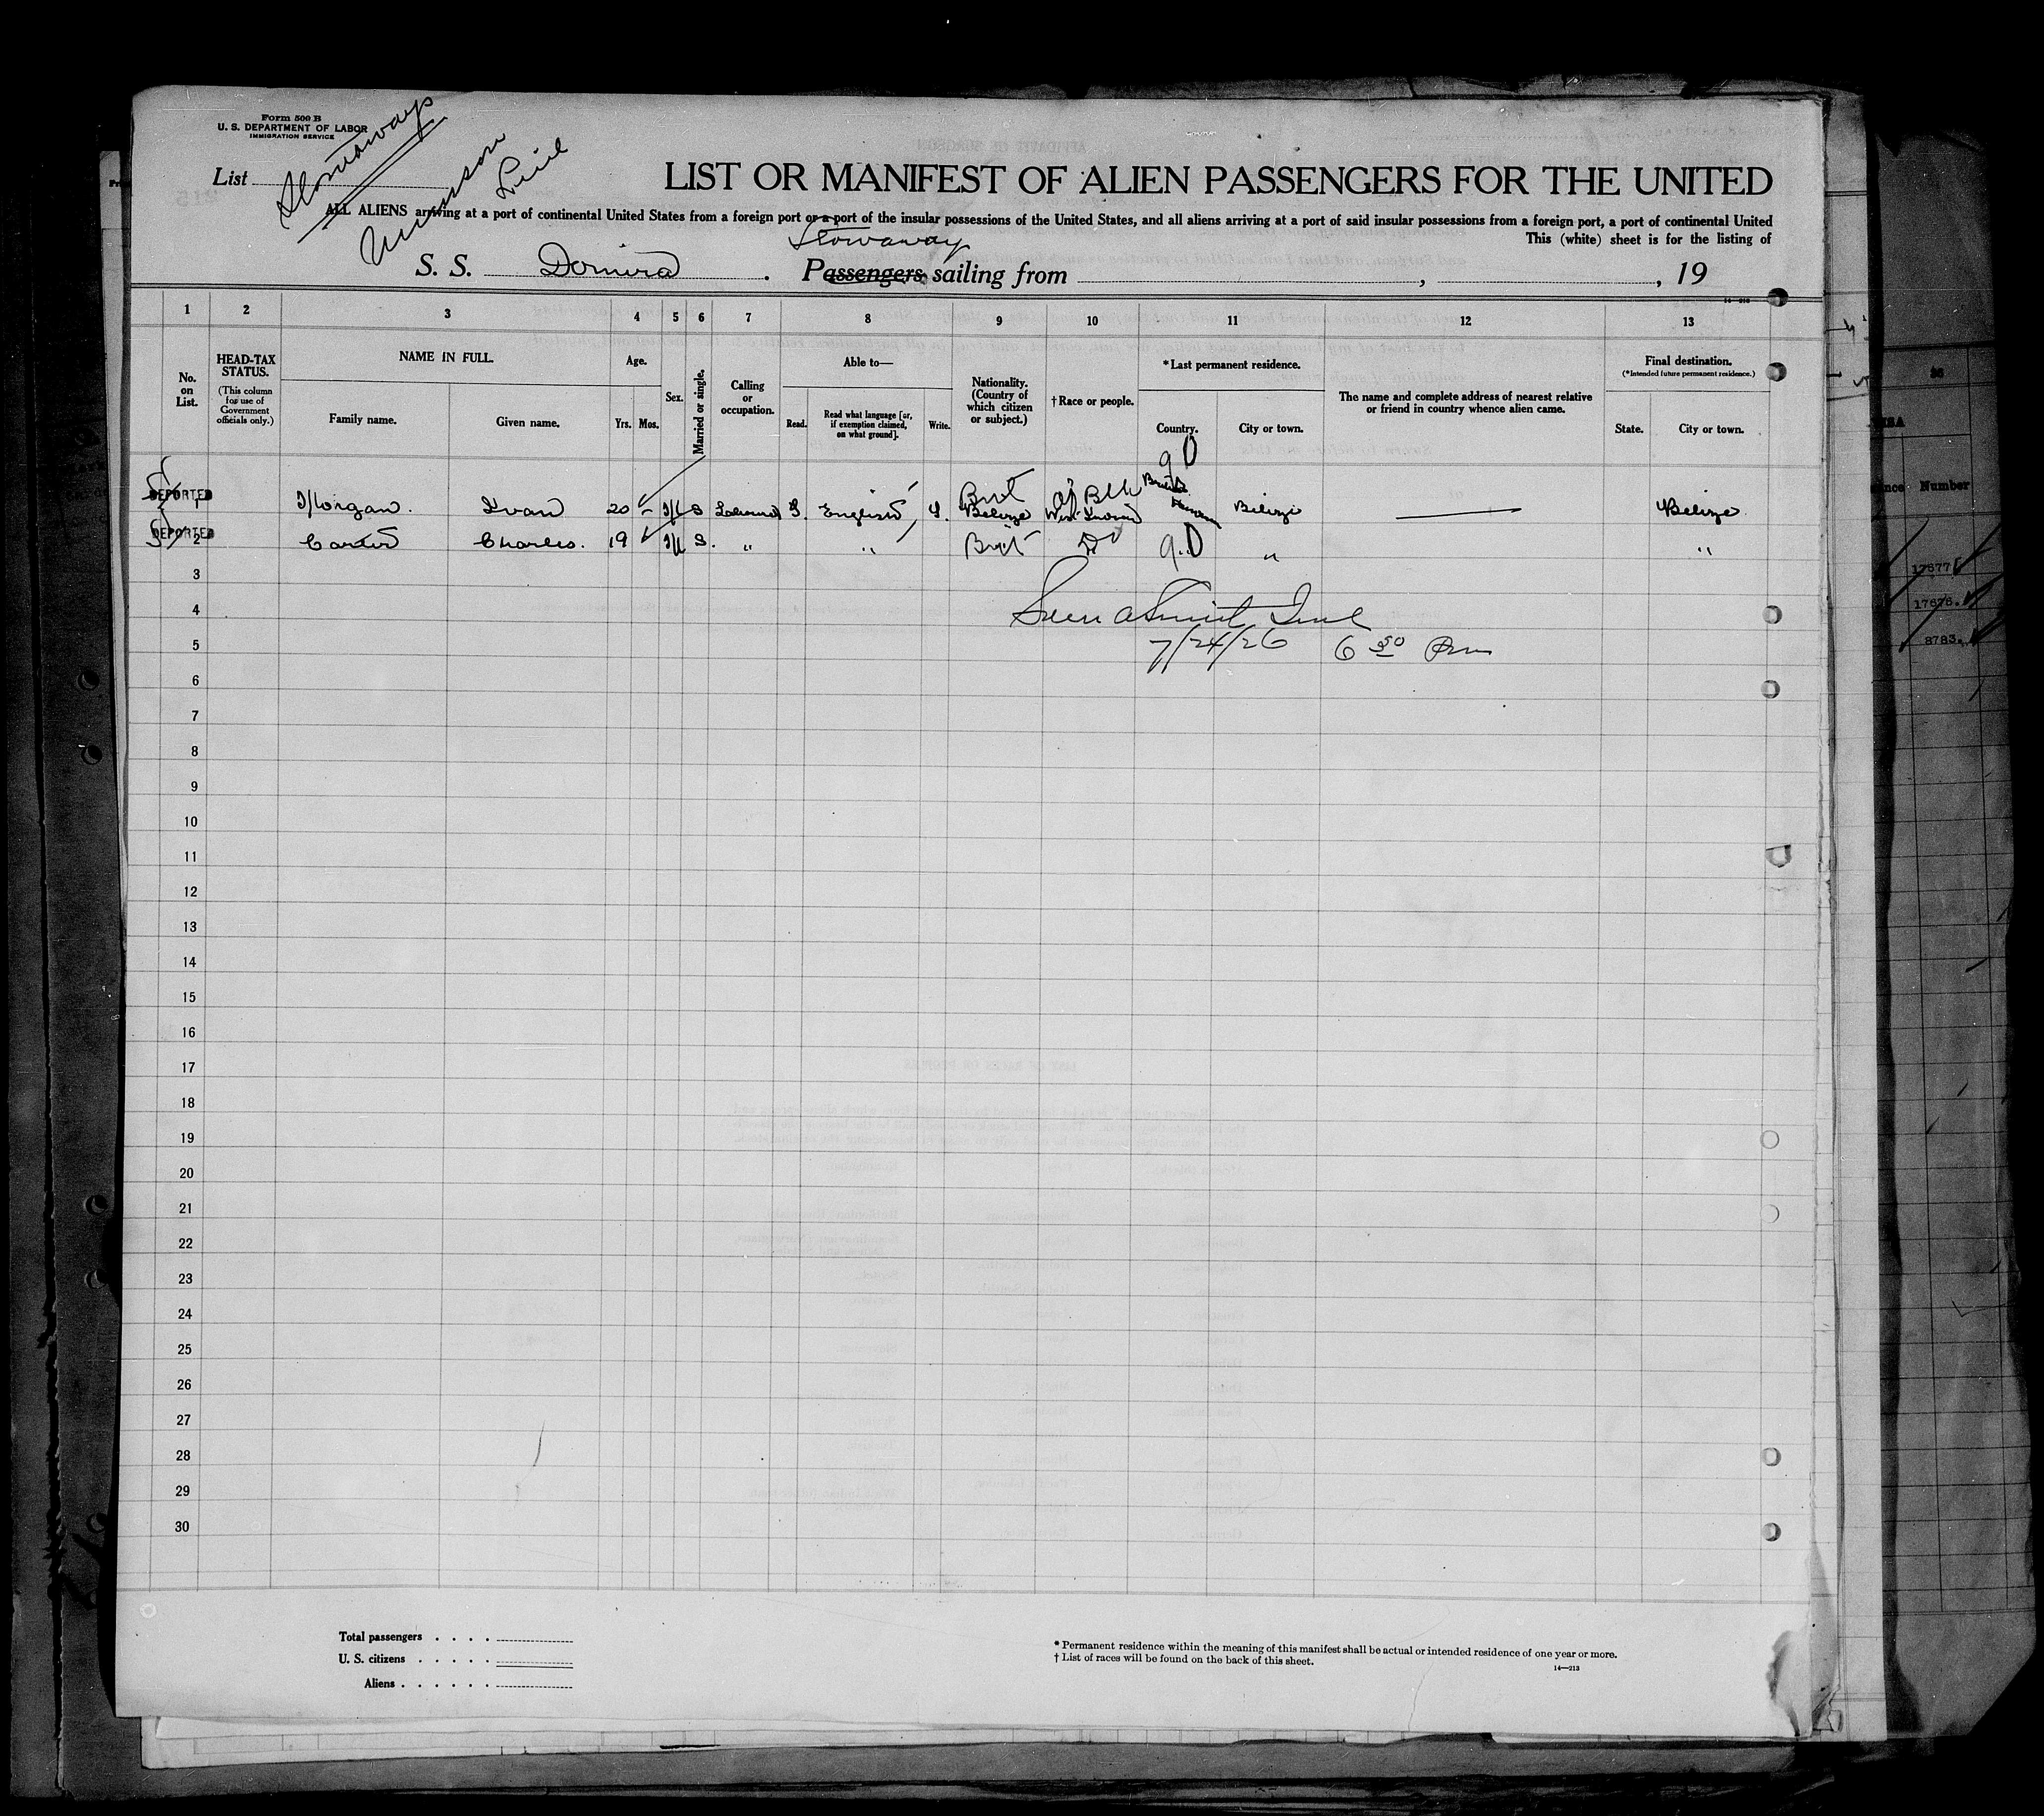 Form 500 B
U. S. DEPARTMENT OF LABOR
IMMIGRATION SERVICE
Stowaways
Munson
Line
List
LIST OR MANIFEST OF ALIEN PASSENGERS FOR THE UNITED
ALL ALIENS arriving at a port of continental United States from a foreign port or a port of the insular possessions of the United States, and all aliens arriving at a port of said insular possessions from a foreign port, a port of continental United
This (white) sheet is for the listing of
Stowaway
S. S. Domira . Passengers sailing from , , 19
14—213
1 2 3 4 5 6 7 8 9 10 11 12 13
No. on List.
HEAD-TAX STATUS.
(This column for use of Government officials only.)
NAME IN FULL.
Family name. Given name.
Age.
Yrs. Mos.
Sex.
Married or single.
Calling or occupation.
Able to—
Read. Read what language [or, if exemption claimed, on what ground]. Write.
Nationality. (Country of which citizen or subject.)
†Race or people.
*Last permanent residence.
Country. City or town.
The name and complete address of nearest relative or friend in country whence alien came.
Final destination.
(*Intended future permanent residence.)
State. City or town.
90
DEPORTED 1 Morgan. Ivan 20 M S Laborer Y. English Y. Brit Belize Af Blk West Indian British Belize Belize
DEPORTED 2 Carter Charles. 19 M S. " " Brit Do 90 " "
3
4
5
7/24/26 6 30 Pm
6
7
8
9
10
11
12
13
14
15
16
17
18
19
20
21
22
23
24
25
26
27
28
29
30
Total passengers . . . .
U. S. citizens . . . . .
Aliens . . . . . .
* Permanent residence within the meaning of this manifest shall be actual or intended residence of one year or more.
† List of races will be found on the back of this sheet.
14—213
Number
17677
17676.
8783.